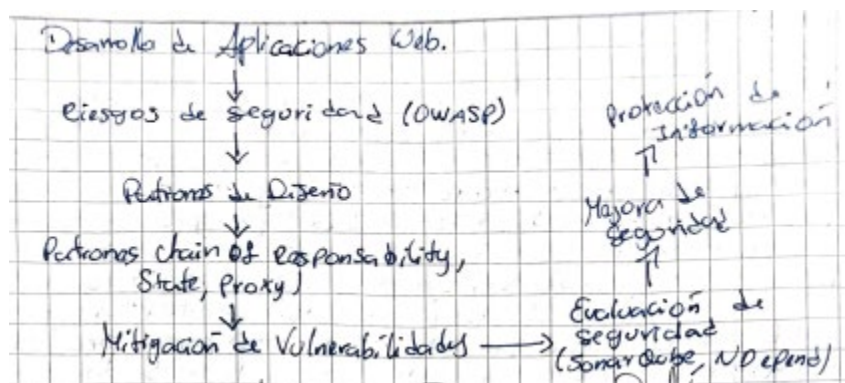 Desarrollo de Aplicaciones Web.
Riesgos de seguridad (OWASP)
Patrones de Diseño
Patrones chain of responsability,
State, Proxy)
Mitigación de Vulnerabilidades
Evaluación de
seguridad
(SonarQube, NDepend)
Mejora de
seguridad
Protección de
Información